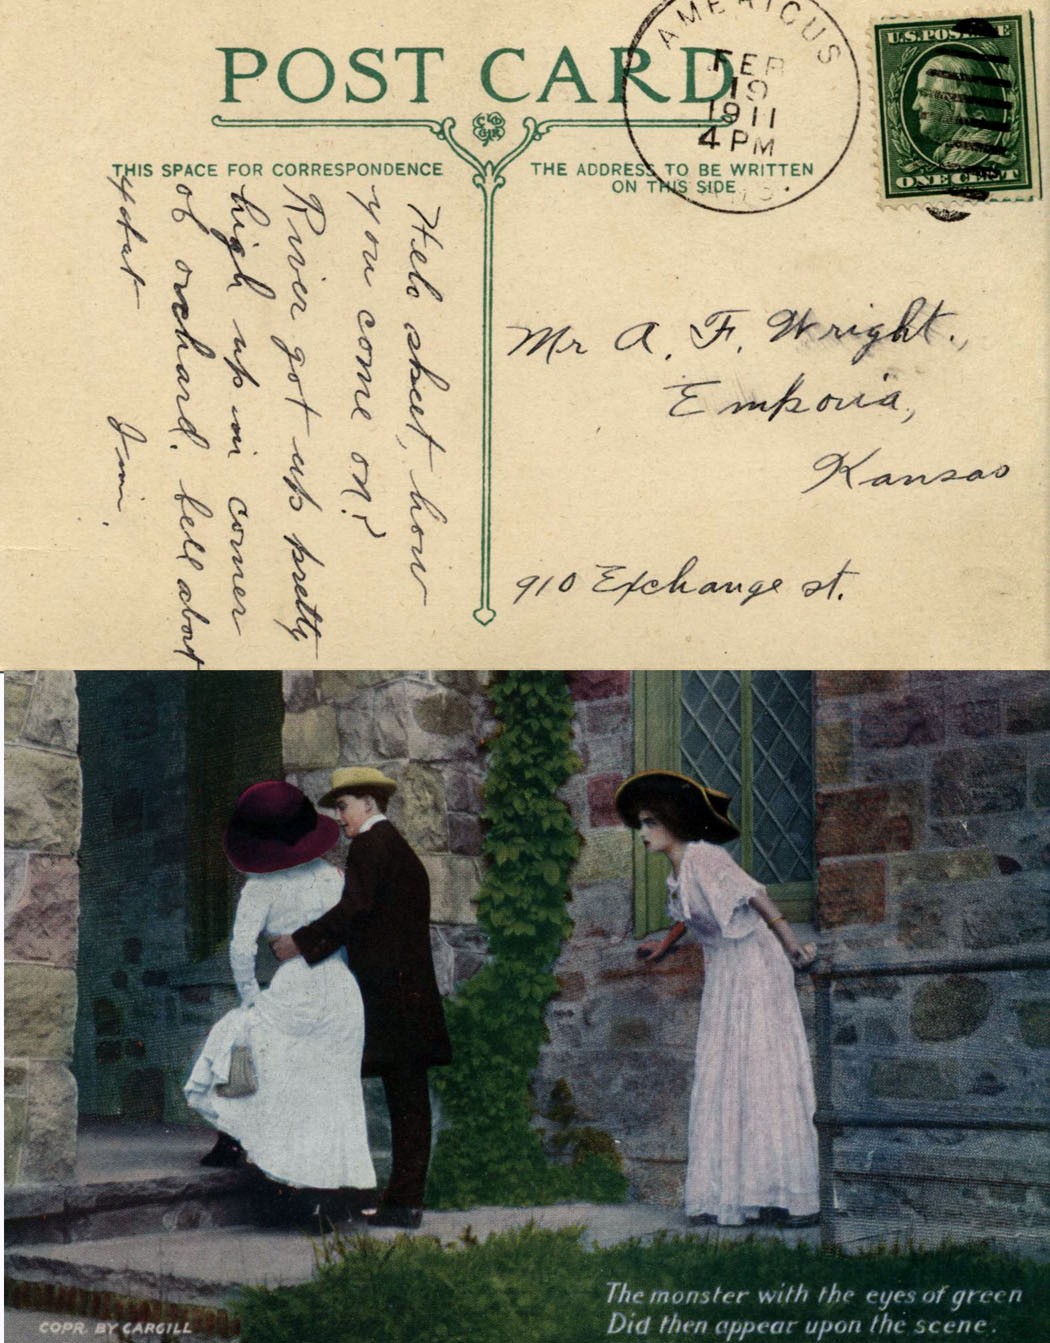 POST CARD
THIS SPACE FOR CORRESPONDENCE
THE ADDRESS TO BE WRITTEN
ON THIS SIDE
AMERICUS
FEB
19
1911
4 PM
U.S. POSTAGE
ONE CENT
Helo skeet, how
you come on?
River got up pretty
high up in corner
of orchard. fell about
ydat
Jim.
Mr A. F. Wright.,
Emporia,
Kansas
910 Exchange st.
The monster with the eyes of green
Did then appear upon the scene.
COPR. BY CARGILL